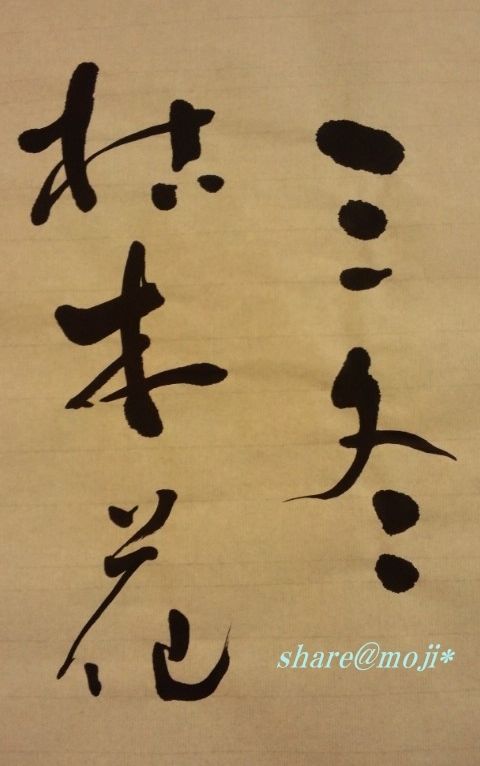 三冬
枯木花
share@moji*